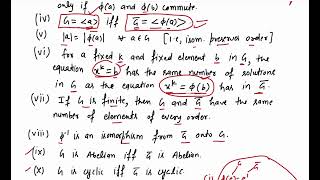 only if φ(a) and φ(b) commute.
(iv) G = <a> iff G̅ = <φ(a)>
(v) |a| = |φ(a)| ∀ a∈G [i.e., isom. preserves order]
(vi) for a fixed k and fixed element b in G, the
equation x^k = b has the same number of solutions
in G as the equation x^k = φ(b) has in G̅.
(vii) If G is finite, then G and G̅ have the same
number of elements of every order.
(viii) φ^-1 is an isomorphism from G̅ onto G.
(ix) G is Abelian iff G̅ is Abelian.
(x) G is cyclic iff G̅ is cyclic
G G̅